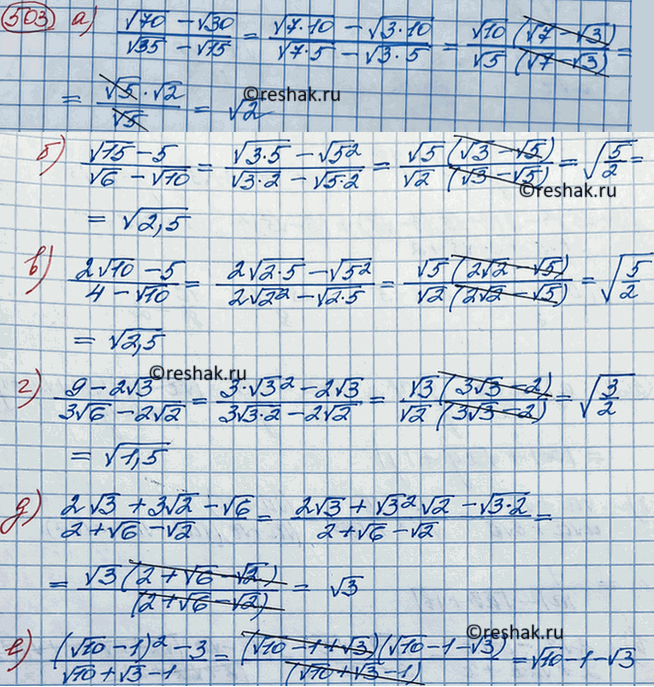 503 а) (√70 − √30)/(√35 − √15) = (√7·10 − √3·10)/(√7·5 − √3·5) = √10(√7 − √3)/√5(√7 − √3) =
= √5·√2/√5 = √2
©reshak.ru
б) (√75 − 5)/(√6 − √10) = (√3·5 − √5²)/(√3·2 − √5·2) = √5(√3 − √5)/√2(√3 − √5) = √5/2 =
©reshak.ru
= √2,5
в) (2√10 − 5)/(4 − √10) = (2√2·5 − √5²)/(2√2² − √2·5) = √5(2√2 − √5)/√2(2√2 − √5) = √5/2
= √2,5
©reshak.ru
г) (9 − 2√3)/(3√6 − 2√2) = (3·√3² − 2√3)/(3√3·2 − 2√2) = √3(3√3 − 2)/√2(3√3 − 2) = √3/2
= √1,5
д) (2√3 + 3√2 − √6)/(2 + √6 − √2) = (2√3 + √3²√2 − √3·2)/(2 + √6 − √2) =
= √3(2 + √6 − √2)/(2 + √6 − √2) = √3
©reshak.ru
е) ((√10 − 1)² − 3)/(√10 + √3 − 1) = (√10 − 1 + √3)(√10 − 1 − √3)/(√10 + √3 − 1) = √10 − 1 − √3